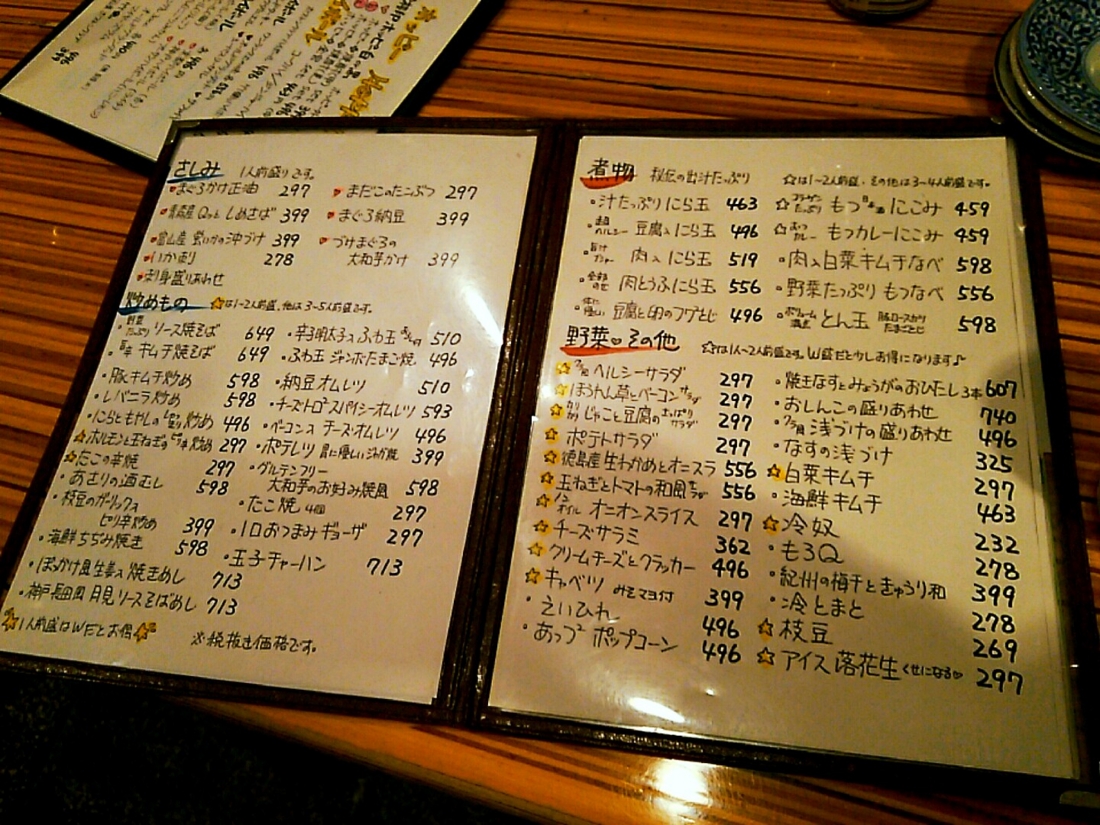 さしみ 1人前盛りです。
まぐろかけ正油 297
青森産 Qっと しめさば 399
富山産 蛍いかの沖づけ 399
いか刺 278
刺身盛りあわせ
まだこのたこぶつ 297
まぐろ納豆 399
づけまぐろの
大和芋かけ 399
炒めもの ☆は1~2人前盛、他は3~5人前盛です。
野菜たっぷり ソース焼そば 649
旨辛 キムチ焼そば 649
豚キムチ炒め 598
レバニラ炒め 598
にらともやしの 炒め 496
ホルモンと玉ねぎの ピリ辛 炒め 297
たこの辛焼 297
あさりの酒むし 598
枝豆のガーリック
ピリ辛炒め 399
海鮮ちぢみ焼き 598
ぼっかけ風生姜入焼きめし 713
神戸長田風 月見ソースそばめし 713
辛子明太子入ふわ玉 510
ふわ玉 ジャンボたまご焼 496
納豆オムレツ 510
チーズトロ²スパイシーオムレツ 593
ベーコン入 チーズオムレツ 496
ポテレツ 胃に優しいジャガ焼 399
グルテンフリー
大和芋のお好み焼風 598
たこ焼 4個 297
1口おつまみギョーザ 297
玉子チャーハン 713
1人前盛はWだとお得
※税抜き価格です。
煮物 秘伝の出汁たっぷり ☆は1~2人前盛、その他は3~4人前盛です。
汁たっぷりにら玉 463
超ヘルシー 豆腐入にら玉 496
肉入にら玉 519
全部のせ 肉とうふにら玉 556
体に優しい 豆腐と卵のフワとじ 496
コラーゲンたっぷり もつ日本酒にこみ 459
もつカレーにこみ 459
肉入白菜キムチなべ 598
野菜たっぷりもつなべ 556
ボリューム満点 とん玉 豚ロースカツたまごとじ 598
野菜♡その他 ☆は1人~2人前盛です。W盛だと少しお得になります♪
ヘルシーサラダ 297
ほうれん草とベーコンサラダ 297
カリカリじゃこと豆腐のさっぱりサラダ 297
ポテトサラダ 297
徳島産生わかめとオニスラ 556
玉ねぎとトマトの和風サラダ 556
ノンオイル オニオンスライス 297
チーズ・サラミ 362
クリームチーズとクラッカー 496
キャベツ みそマヨ付 399
えいひれ 496
あっつ² ポップコーン 496
焼きなすとみょうがのおひたし 3本 607
おしんこの盛りあわせ 740
浅づけの盛りあわせ 496
なすの浅づけ 325
白菜キムチ 297
海鮮キムチ 463
冷奴 232
もろQ 278
紀州の梅干ときゅうり和 399
冷とまと 278
枝豆 269
アイス落花生 くせになる♡ 297